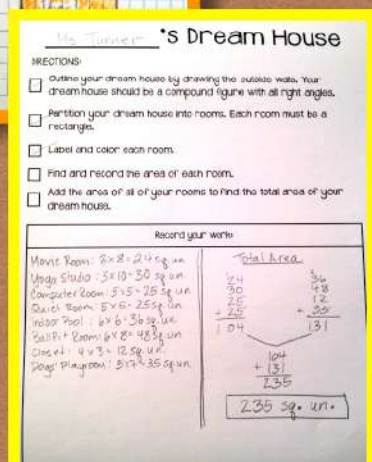 Ms Turner's Dream House
DIRECTIONS:
Outline your dream house by drawing the outside walls. Your
dream house should be a compound figure with all right angles.
Partition your dream house into rooms. Each room must be a
rectangle.
Label and color each room.
Find and record the area of each room.
Add the area of all of your rooms to find the total area of your
dream house.
Record your work:
Movie Room: 3x8=24 sq un
Yoga Studio: 3x10=30 sq un.
Computer Room: 5x5=25 sq un
Quiet Room: 5x5=25 sq un.
Indoor Pool: 6x6=36 sq. un.
Ball Pit Room: 6x8=48 sq un
Closet: 4x3=12 sq. un.
Dogs' Playroom: 5x7=35 sq. un
Total Area
24
30
25
+ 25
104
36
48
12
+ 35
131
104
+ 131
235
235 sq. un.